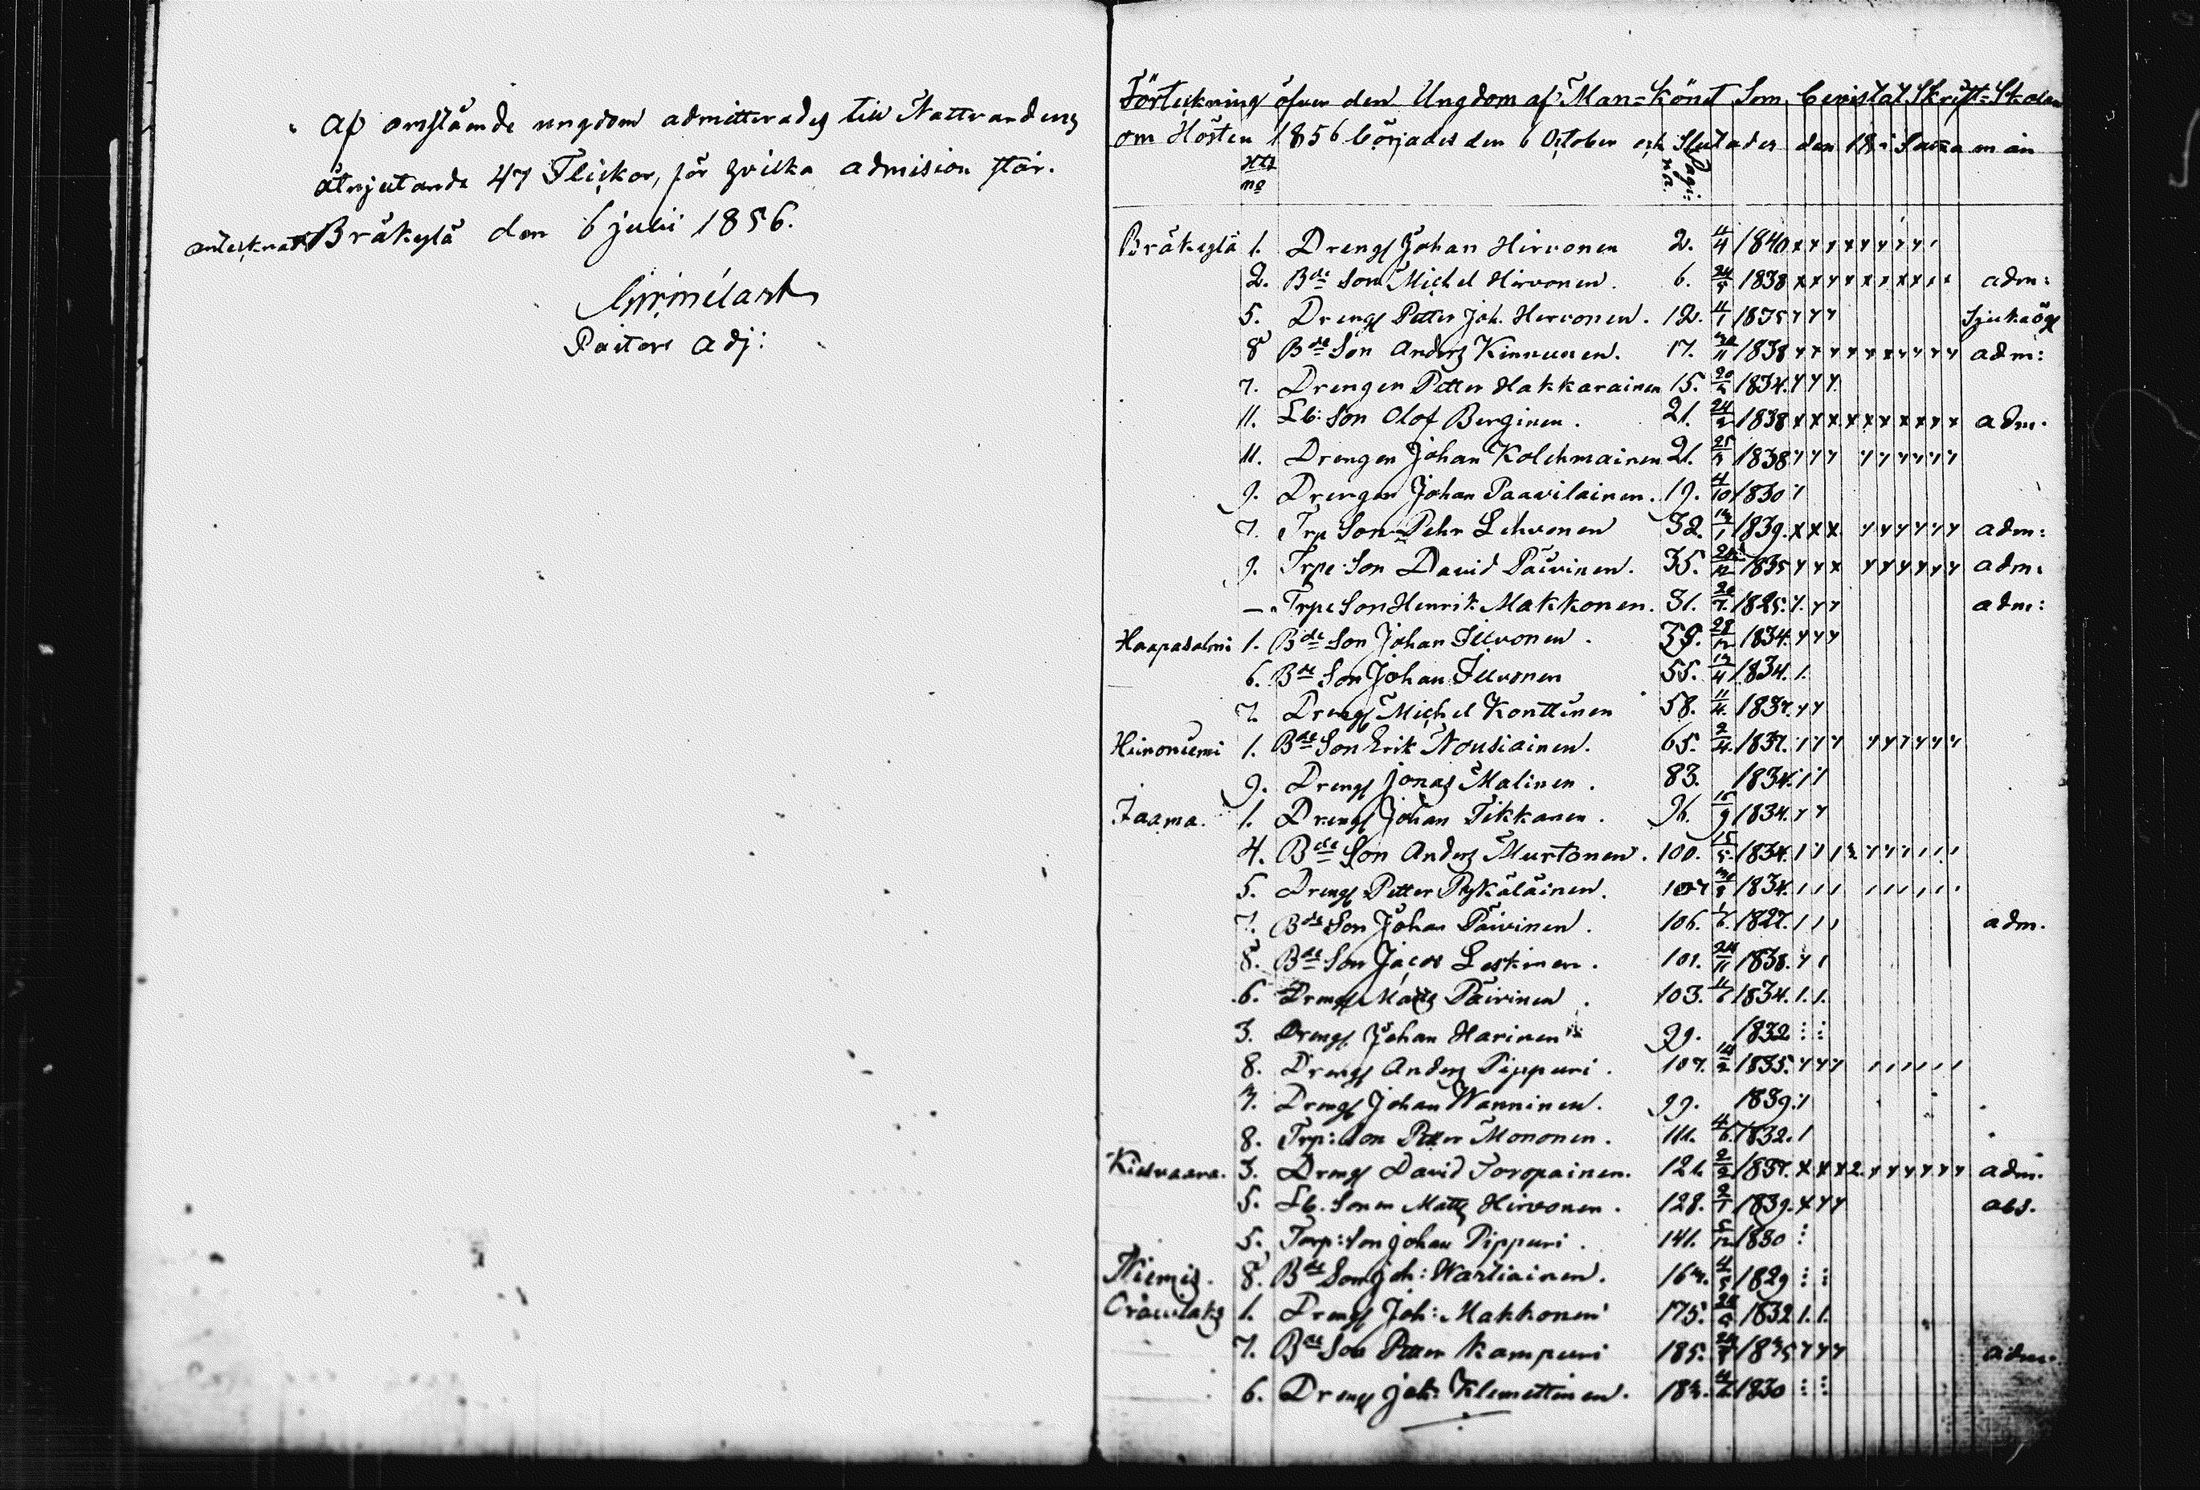 af omstående ungdom admitterades till Nattvardens
åtnjutande 47 Flickor, för hvilka admision står.
antecknadt Bräkylä den 6 juli 1856.
Pastors adj:
Förteckning öfver den Ungdom af Man=Könet Som bevistat Skrift=Skolan
om Hösten 1856 börjades den 6 October och Slutades den 18 i Samma mån
no Pagi: na
Bräkylä 1. Drengs Johan Hirvonen 2. 4/4 1840 x x x x x x x x
2. Bde Son Michel Hirvonen. 6. 1838 x x x x x x x x x x adm:
5. Drengs Petter Joh. Hirvonen. 12. 1835 x x x
8 Bde Son Anders Kinnunen. 17. 1838 x x x x x x x x x x adm:
7. Drengen Petter Hakkarainen 15. 1834. x x x
11. Lb: Son Olof Berginen. 21. 24/2 1838 x x x x x x x x x x adm.
11. Drengen Johan Kolehmainen 21. 1838 x x x x x x x x x
9. Drengen Johan Paavilainen. 19. 4/10 1830
7. Trp Son Pehr Lehvonen 32. 1839. x x x x x x x x x adm:
9. Trpe: Son David Päivinen. 35. 1835 x x x x x x x x x adm:
—. Trpe Son Henrik Makkonen. 31. 1825. x x x adm:
Haapasalmi 1. Bde Son Johan Ilvonen. 39. 28/12 1834. x x x
6. Bde Son Johan Ilvonen 55. 1834. 1.
7. Drengs Michel Konttinen 58. 11/4. 1837. x x
Heinoniemi 1. Bde Son Erik Nousiainen. 65. 2/4. 1837. x x x x x x x x x
9. Drengs Jonas Malinen. 83. 1834.
Jaama. 1. Drengs Johan Tikkanen. 96. 1834. x x
4. Bde Son Anders Murtonen. 100. 15/5. 1834.
5. Drengs Petter Pykäläinen. 1834.
7. Bde Son Johan Päivinen. 106. 1/6. 1827. 1 1 1 adm.
8. Bde Son Jacob Leskinen. 101. 24/11 1838.
6. Drengs Matts Päivinen. 103. 1834. 1. 1.
3. Drengs Johan Harinen 99. 1832 : :
8. Drengs Anders Pippuri. 107. 1835. x x x 1 1 1 1 1 1
7. Drengs Johan Wanninen. 99. 1839.
8. Trp: Son Petter Mononen. 111. 1832. 1
Kiesvaara. 3. Drengs David Toropainen. 121. 2/2 1837. x x x 2 x x x x x x adm.
5. Lb. Sonen Matts Hirvonen. 128. 1839. x x x abs.
5. Torp: Son Johan Pippuri. 141. 5/12 1830 :
Niemis. 8. Bde Son Joh: Wartiainen. 1829 : :
Oravilaks 1. Drengs Joh: Makkonen 175. 1832 1. 1.
7. Bde Son Petter Kampuri 185. 1835 x x x adm.
6. Drengs Joh: Klemettinen. 1830 : :